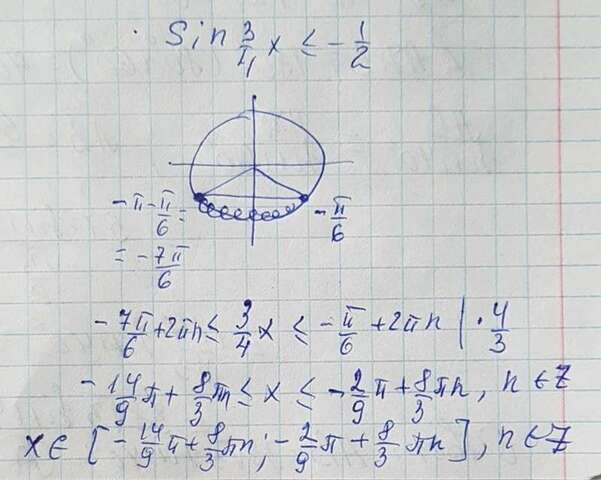 Sin 3/4 x ≤ -1/2
-π-π/6 =
-π/6
= -7π/6
-7π/6 + 2πn ≤ 3/4 x ≤ -π/6 + 2πn | · 4/3
-14/9 π + 8/3 πn ≤ x ≤ -2/9 π + 8/3 πn, n ∈ Z
x ∈ [-14/9 π + 8/3 πn; -2/9 π + 8/3 πn], n ∈ Z